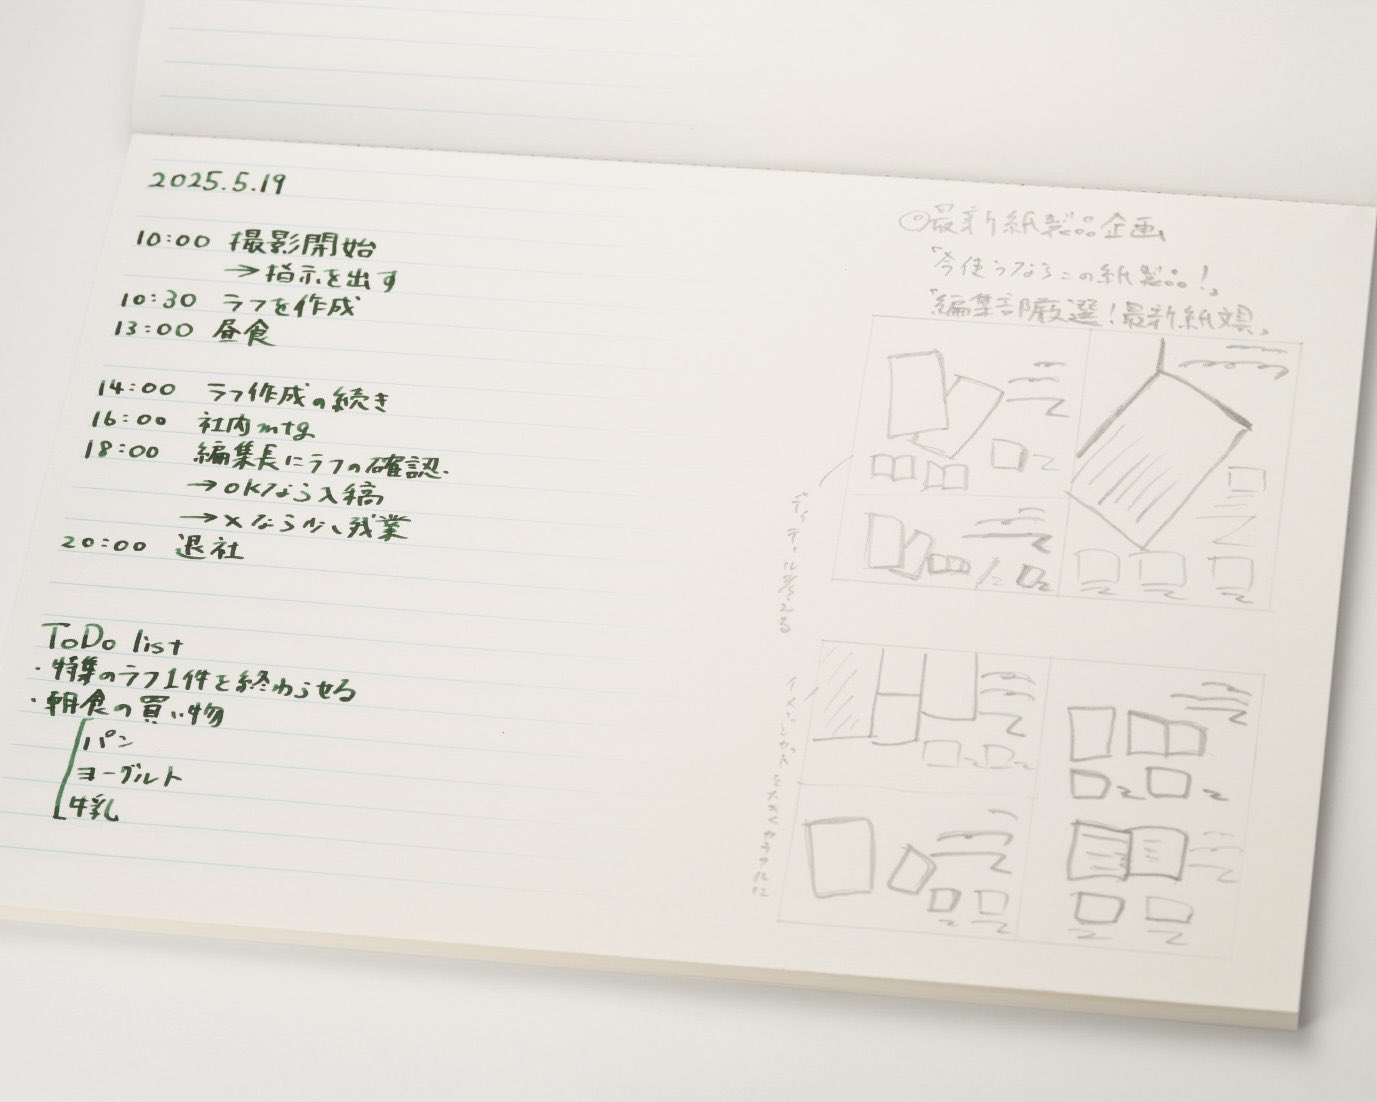 2025.5.19
10:00 撮影開始
→指示を出す
10:30 ラフを作成
13:00 昼食
14:00 ラフ作成の続き
16:00 社内mtg
18:00 編集長にラフの確認.
→OKなら入稿
→×なら少し残業
20:00 退社
ToDo list
・特集のラフ1件を終わらせる
・朝食の買い物
パン
ヨーグルト
牛乳
◎最新紙製品企画
「今使うならこの紙製品!」
「編集部厳選!最新紙文具」
ディテール
イメージカットを大きくカラフルに